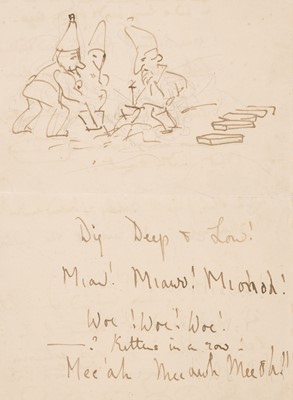 Dig Deep & Low!
Miaw! Miaw! Miohoh!
Woe! Woe! Woe!
——? Kittens in a row!
Mee'ah Meeauh Meeoh!!